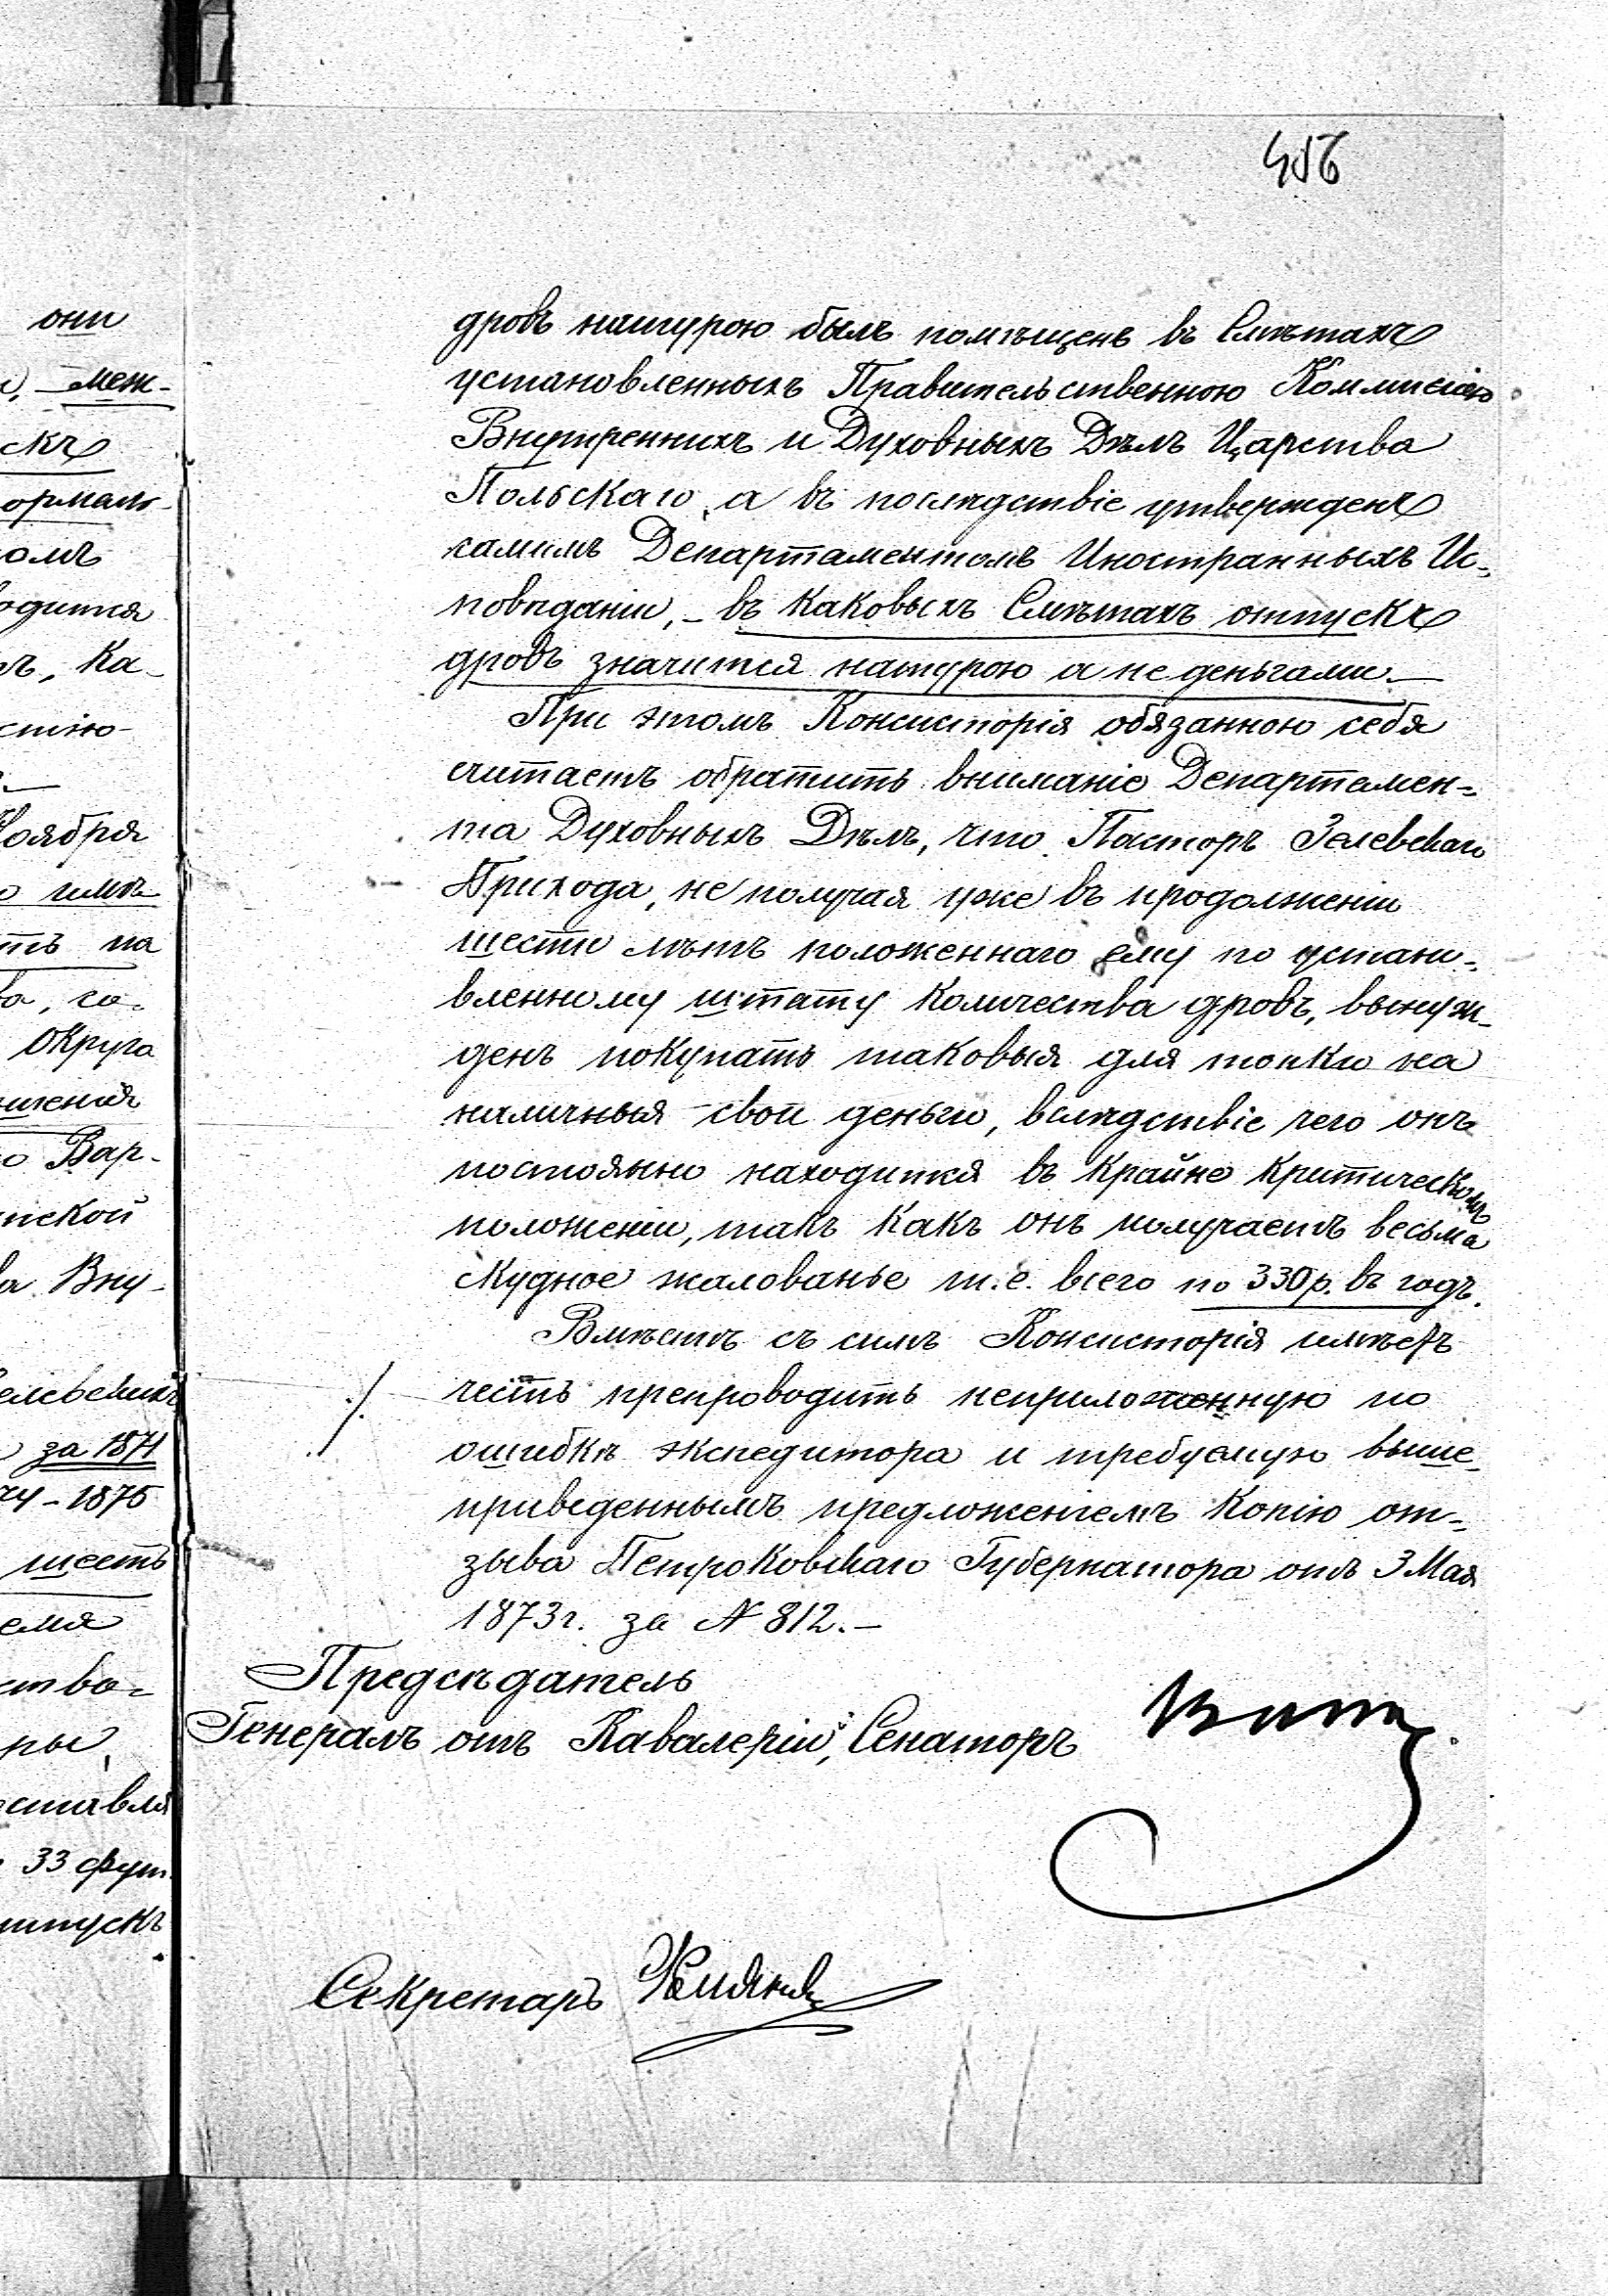 дровъ натурою былъ помѣщенъ въ Смѣтахъ
установленныхъ Правительственною Коммисіею
Внутреннихъ и Духовныхъ Дѣлъ Царства
Польскаго, а въ послѣдствіе утвержденъ
самимъ Департаментомъ Иностранныхъ Ис-
повѣданіи, – въ каковыхъ Смѣтахъ отпускъ
дровъ значится натурою а не деньгами. –
При этомъ Консисторія обязанною себя
считаетъ обратить вниманіе Департамен-
та Духовныхъ Дѣлъ, что Пасторъ Зелевскаго
Прихода, не получая уже въ продолженіи
шести лѣтъ положеннаго ему по устано-
вленному штату количества дровъ, вынуж-
денъ покупать таковыя для топки на
наличныя свои деньги, вслѣдствіе чего онъ
постоянно находится въ крайне критическомъ
положеніи, такъ какъ онъ получаетъ весьма
скудное жалованье т.е. всего по 330 р. въ годъ.
Вмѣстѣ съ симъ Консисторія имѣетъ
честь препроводить неприложенную по
ошибкѣ экспедитора и требуемую выше-
приведеннымъ предложеніемъ копію от-
зыва Петроковскаго Губернатора отъ 3 Мая
1873 г. за № 812. –
Предсѣдатель
Генералъ отъ Кавалеріи, Сенаторъ
Секретарь
они
, меж-
скъ
ормаль-
омъ
одится
ъ, Ка-
стію-
Ноября
ть на
Округа
о Вар-
нской
а Вну-
елевскихъ
за 1871
1875
шесть
ство-
ры,
33 фут.
отпускъ